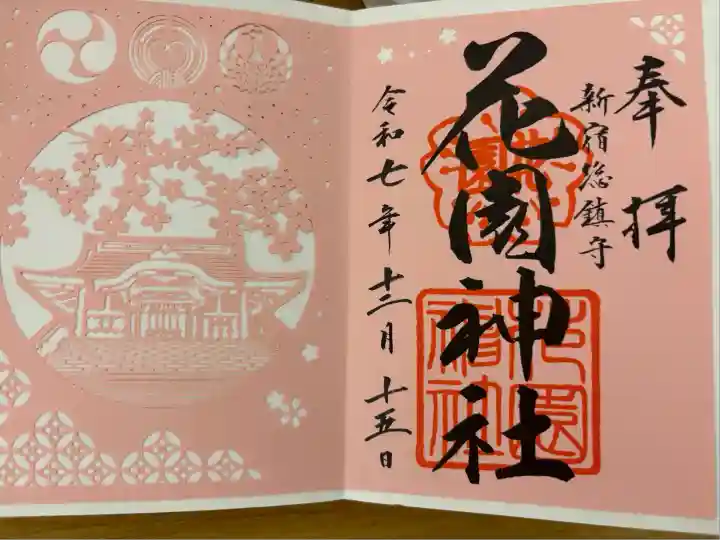 奉拝
新宿総鎮守
花園神社
花園神社
令和七年十二月十五日